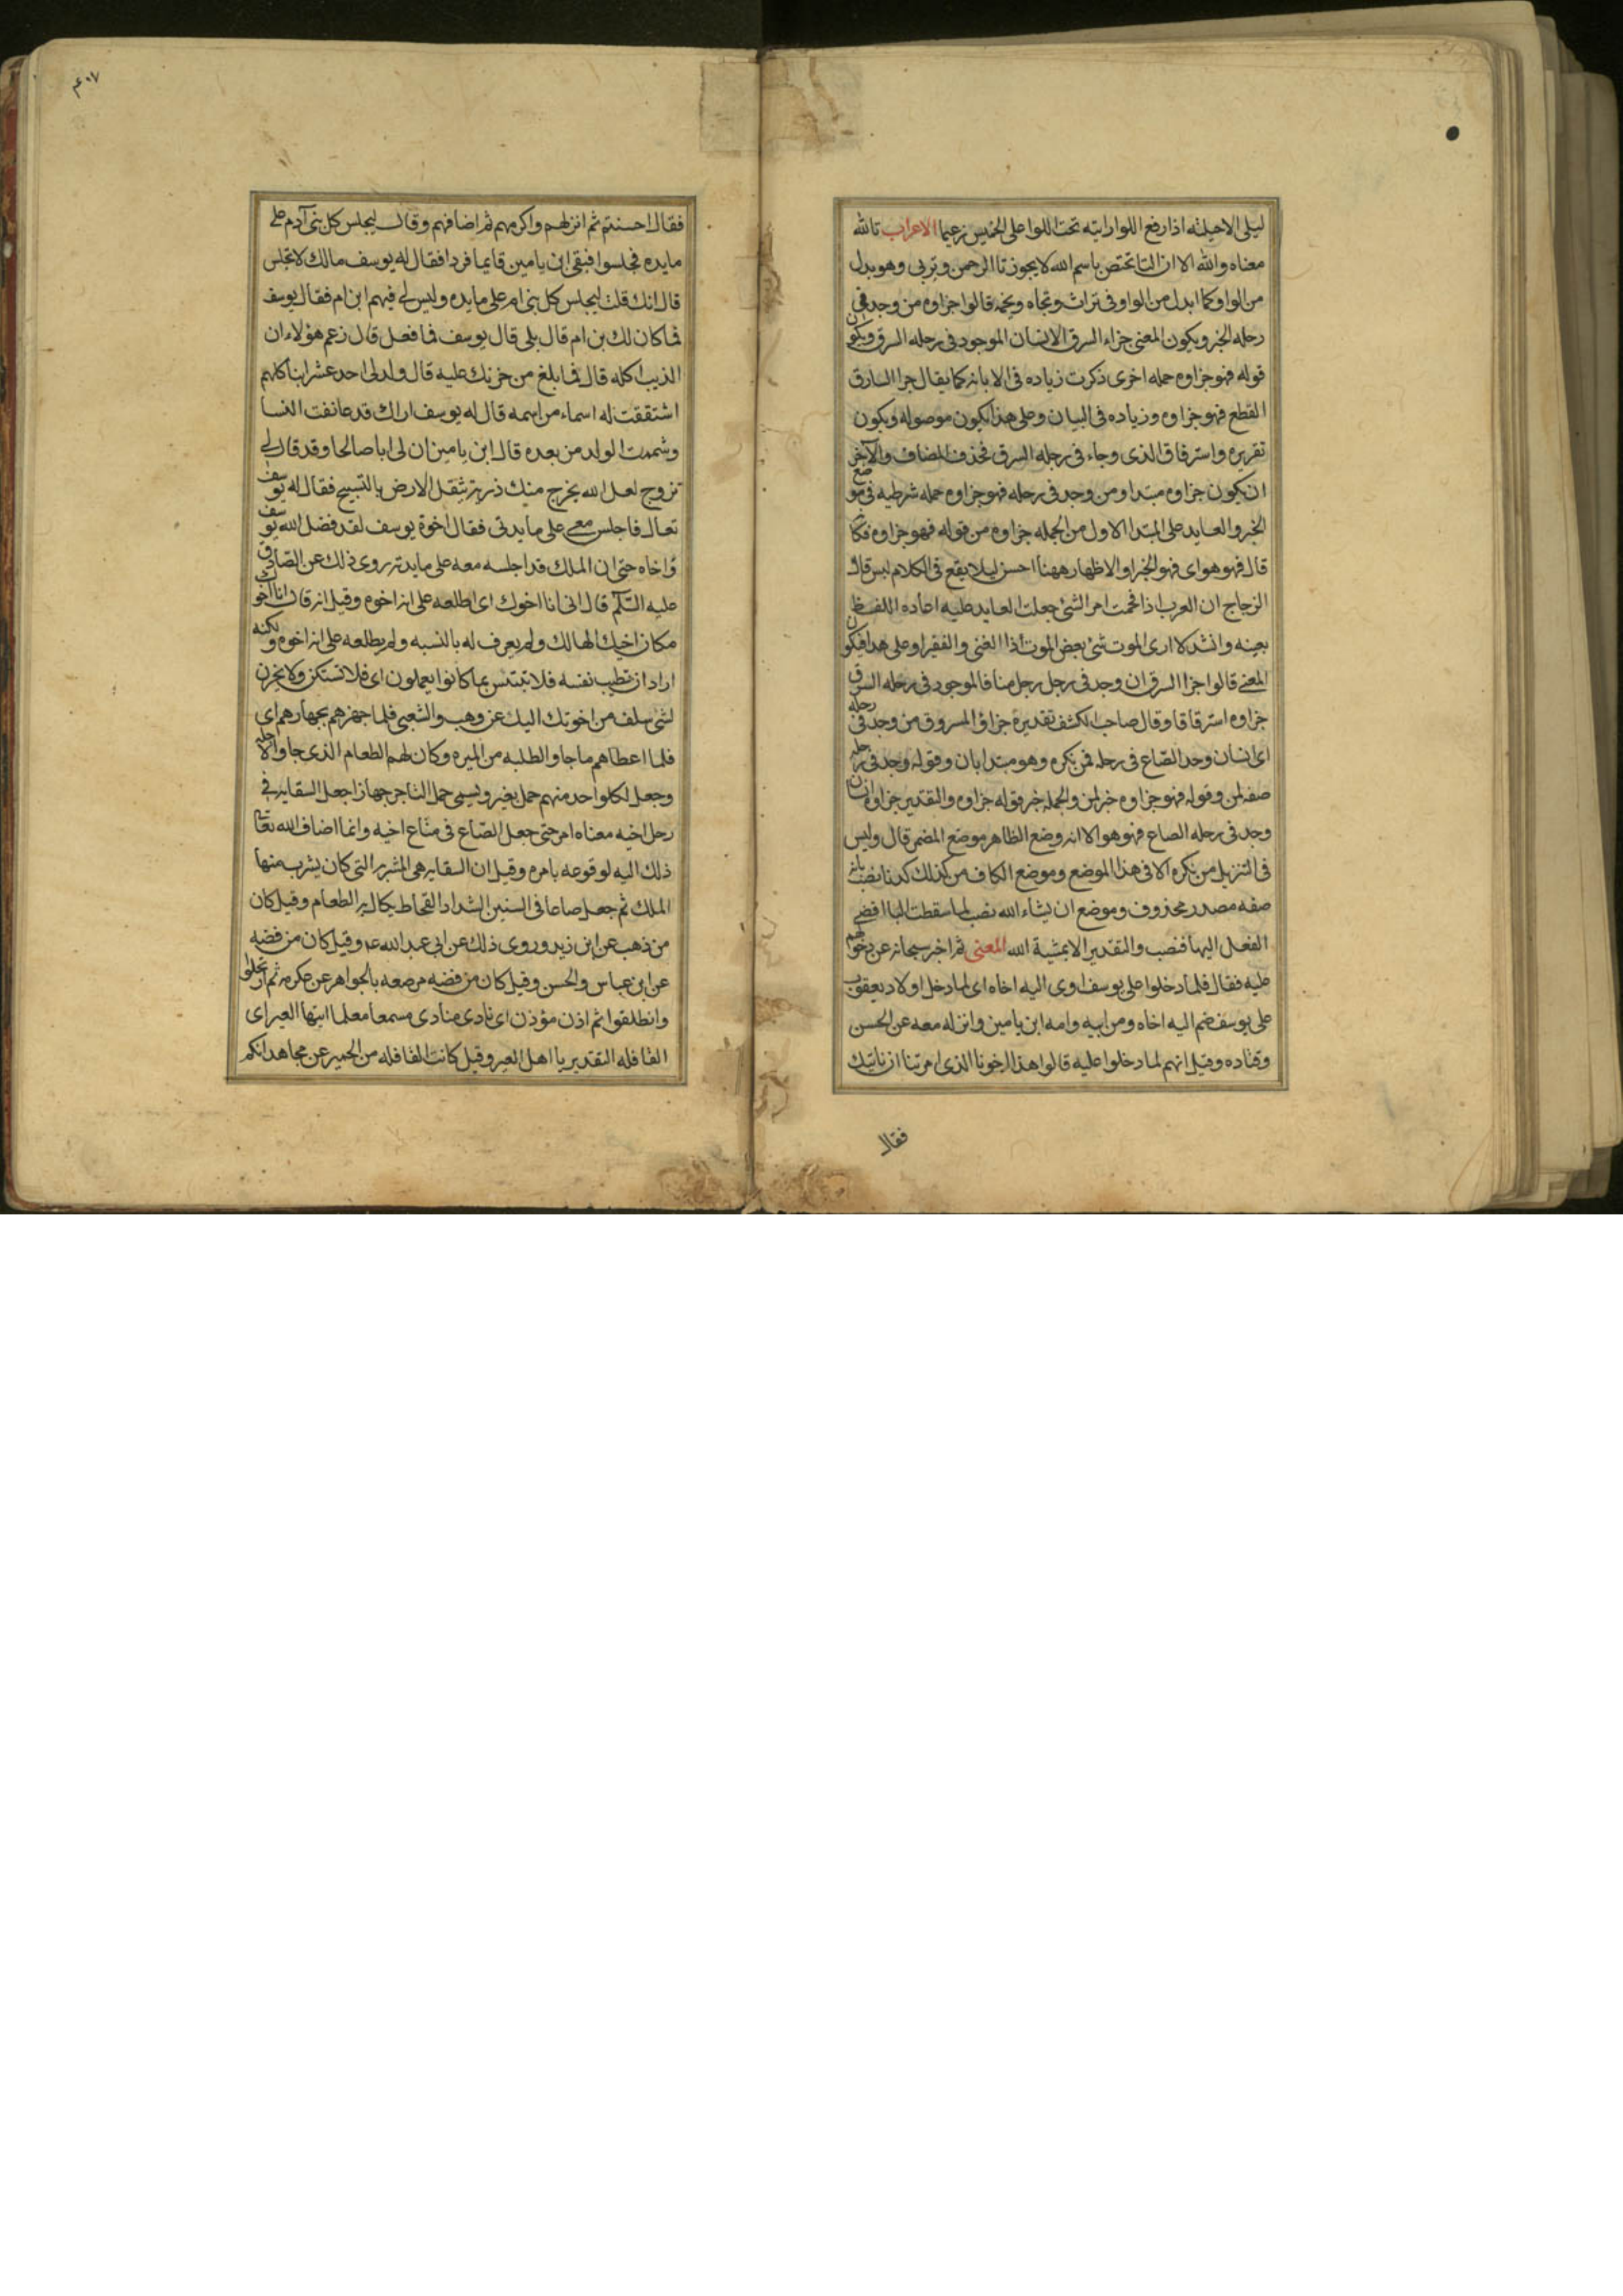 ليلى الاخيليه اذا رفع اللوا رايته تحت اللوا على الخميس زعيما الاعراب تالله
معناه والله الا ان التا تختص باسم الله لا يجوز تا الرحمن وتربى وهو بدل
من الواو كما ابدل من الواو فى تراث وتجاه وتخمه قالوا جزاوه من وجد فى
رحله الخبر ويكون المعنى جزاء السرق الانسان الموجود فى رحله السرق ويكون
قوله فهو جزاوه جمله اخرى ذكرت زياده فى الابانه كما يقال جزا السارق
القطع فهو جزاوه وزياده فى البيان وعلى هذا يكون موصوله ويكون
تقريره واسترقاق الذى وجاء فى رحله السرق فحذف المضاف والآخر
ان يكون جزاوه مبتدا ومن وجد فى رحله فهو جزاوه جمله شرطيه فى موضع
الخبر والعايد على المبتدا الاول من الجمله جزاوه من قوله فهو جزاوه فكا
قال فهو هو اى فهو الخبر او الاظهار ههنا احسن ليلا يقع فى الكلام لبس قال
الزجاج ان العرب اذا فخمت امر الشئ جعلت العايد عليه اعاده اللفظ
بعينه وانشد لا ارى الموت شئ بعض الموت اذا الغنى والفقيرا وعلى هذا فيكون
المعنى قالوا جزا السرق ان وجد فى رجل رجل منا فالموجود فى رحله السرق
جزاوه استرقاقا وقال صاحب الكشف تقديره جزاؤ المسروق من وجد فى رحله
اى انسان وجد الصّاع فى رحله فمن نكره وهو مبتدا بان وقوله وجد فى رحله
صفه لمن وقوله فهو جزاوه خبر لمن والجمله خبر قوله جزاوه والتقدير جزاوه انسان
وجد فى رحله الصاع فهو هو الا انه وضع الظاهر موضع المضمر قال وليس
فى التنزيل من نكره الا فى هذا الموضع وموضع الكاف من كذلك كدنا نصب بانه
صفه مصدر محذوف وموضع ان يشاء الله نصب لما سقطت البا افضى
الفعل اليها فنصب والتقدير الا بمشية الله المعنى ثم اخبر سبحانه عن دخولهم
عليه فقال فلما دخلوا على يوسف اوى اليه اخاه اى لما دخل اولاد يعقوب
على يوسف ضم اليه اخاه ومن ابيه وامه ابن يامين وانزله معه عن الحسن
وقتاده وقيل انهم لما دخلوا عليه قالوا هذا اخونا الذى امرتنا ان ناتيك
فقال
٤٠٧
فقال احسنتم ثم انزلهم واكرمهم ثم اضافهم وقال ليجلس كل بنى آدم على
مايده فجلسوا فبقى ابن يامين قايما فردا فقال له يوسف مالك لا تجلس
قال انك قلت ليجلس كل بنى ام على مايده وليس لى فيهم ابن ام فقال يوسف
فما كان لك بن ام قال بلى قال يوسف فما فعل قال زعم هؤلاء ان
الذيب اكله قال فما بلغ من حزنك عليه قال ولد لى احد عشر ابنا كلهم
اشتققت له اسماء من اسمه قال له يوسف اراك قد عانفت النسا
وشممت الولد من بعده قال ابن يامين ان لى ابا صالحا وقد قال لى
تزوج لعل الله يخرج منك ذريه تثقل الارض بالتسبيح فقال له يوسف
تعال فاجلس معى على مايدتى فقال اخوة يوسف لقد فضل الله يوسف
واخاه حتى ان الملك قد اجلسه معه على مايدته روى ذلك عن الصّادق
عليه السّلم قال انى انا اخوك اى اطلعه على انه اخوه وقيل انه قال انا اخوك
مكان اخيك الهالك ولم يعرف له بالنسبه ولم يطلعه على انه اخوه ولكنه
اراد ان تطيب نفسه فلا تبتئس بما كانوا يعملون اى فلا تستكن ولا تحزن
لشئ سلف من اخوتك اليك عن وهب والشعبى فلما جهزهم بجهازهم اى
فلما اعطاهم ما جاو الطلبه من الميره وكان لهم الطعام الذى جاو الاجله
وجعل لكل واحد منهم حمل بعير ويسمى حمل التاجر جهازا جعل السقايه فى
رحل اخيه معناه امر حتى جعل الصّاع فى متاع اخيه وانما اضاف الله تعا
ذلك اليه لوقوعه بامره وقيل ان السقايه هى المشربه التى كان يشرب منها
الملك ثم جعل صاعا فى السنين الشداد القحاط يكال به الطعام وقيل كان
من ذهب عن ابن زيد وروى ذلك عن ابى عبد الله ع وقيل كان من فضه
عن ابن عباس والحسن وقيل كان من فضه مرصعه بالجواهر عن عكرمه ثم ارتحلوا
وانطلقوا ثم اذن مؤذن اى نادى منادى مسمعا معلما ايتها العير اى
القافله التقدير يا اهل العير وقيل كانت القافله من الحمير عن مجاهد انكم